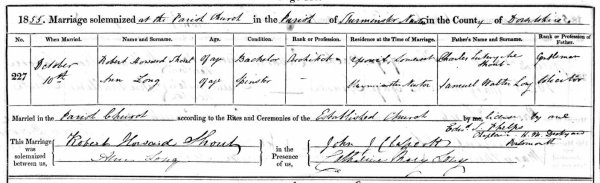 1855. Marriage solemnized at the Parish Church in the Parish of Sturminster Newton in the County of Dorsetshire
No. When Married. Name and Surname. Age. Condition. Rank or Profession. Residence at the Time of Marriage. Father's Name and Surname. Rank or Profession of Father.
227 October 10th Robert Howard Shout of age Bachelor Architect Yeovil, Somerset Charles Shout Gentleman
Ann Long of age Spinster — Sturminster Newton Samuel Walter Long Solicitor
Married in the Parish Church according to the Rites and Ceremonies of the Established Church by License by me
This Marriage was solemnized between us, Robert Howard Shout Ann Long in the Presence of us, John Catherine Mary Long
Phelps